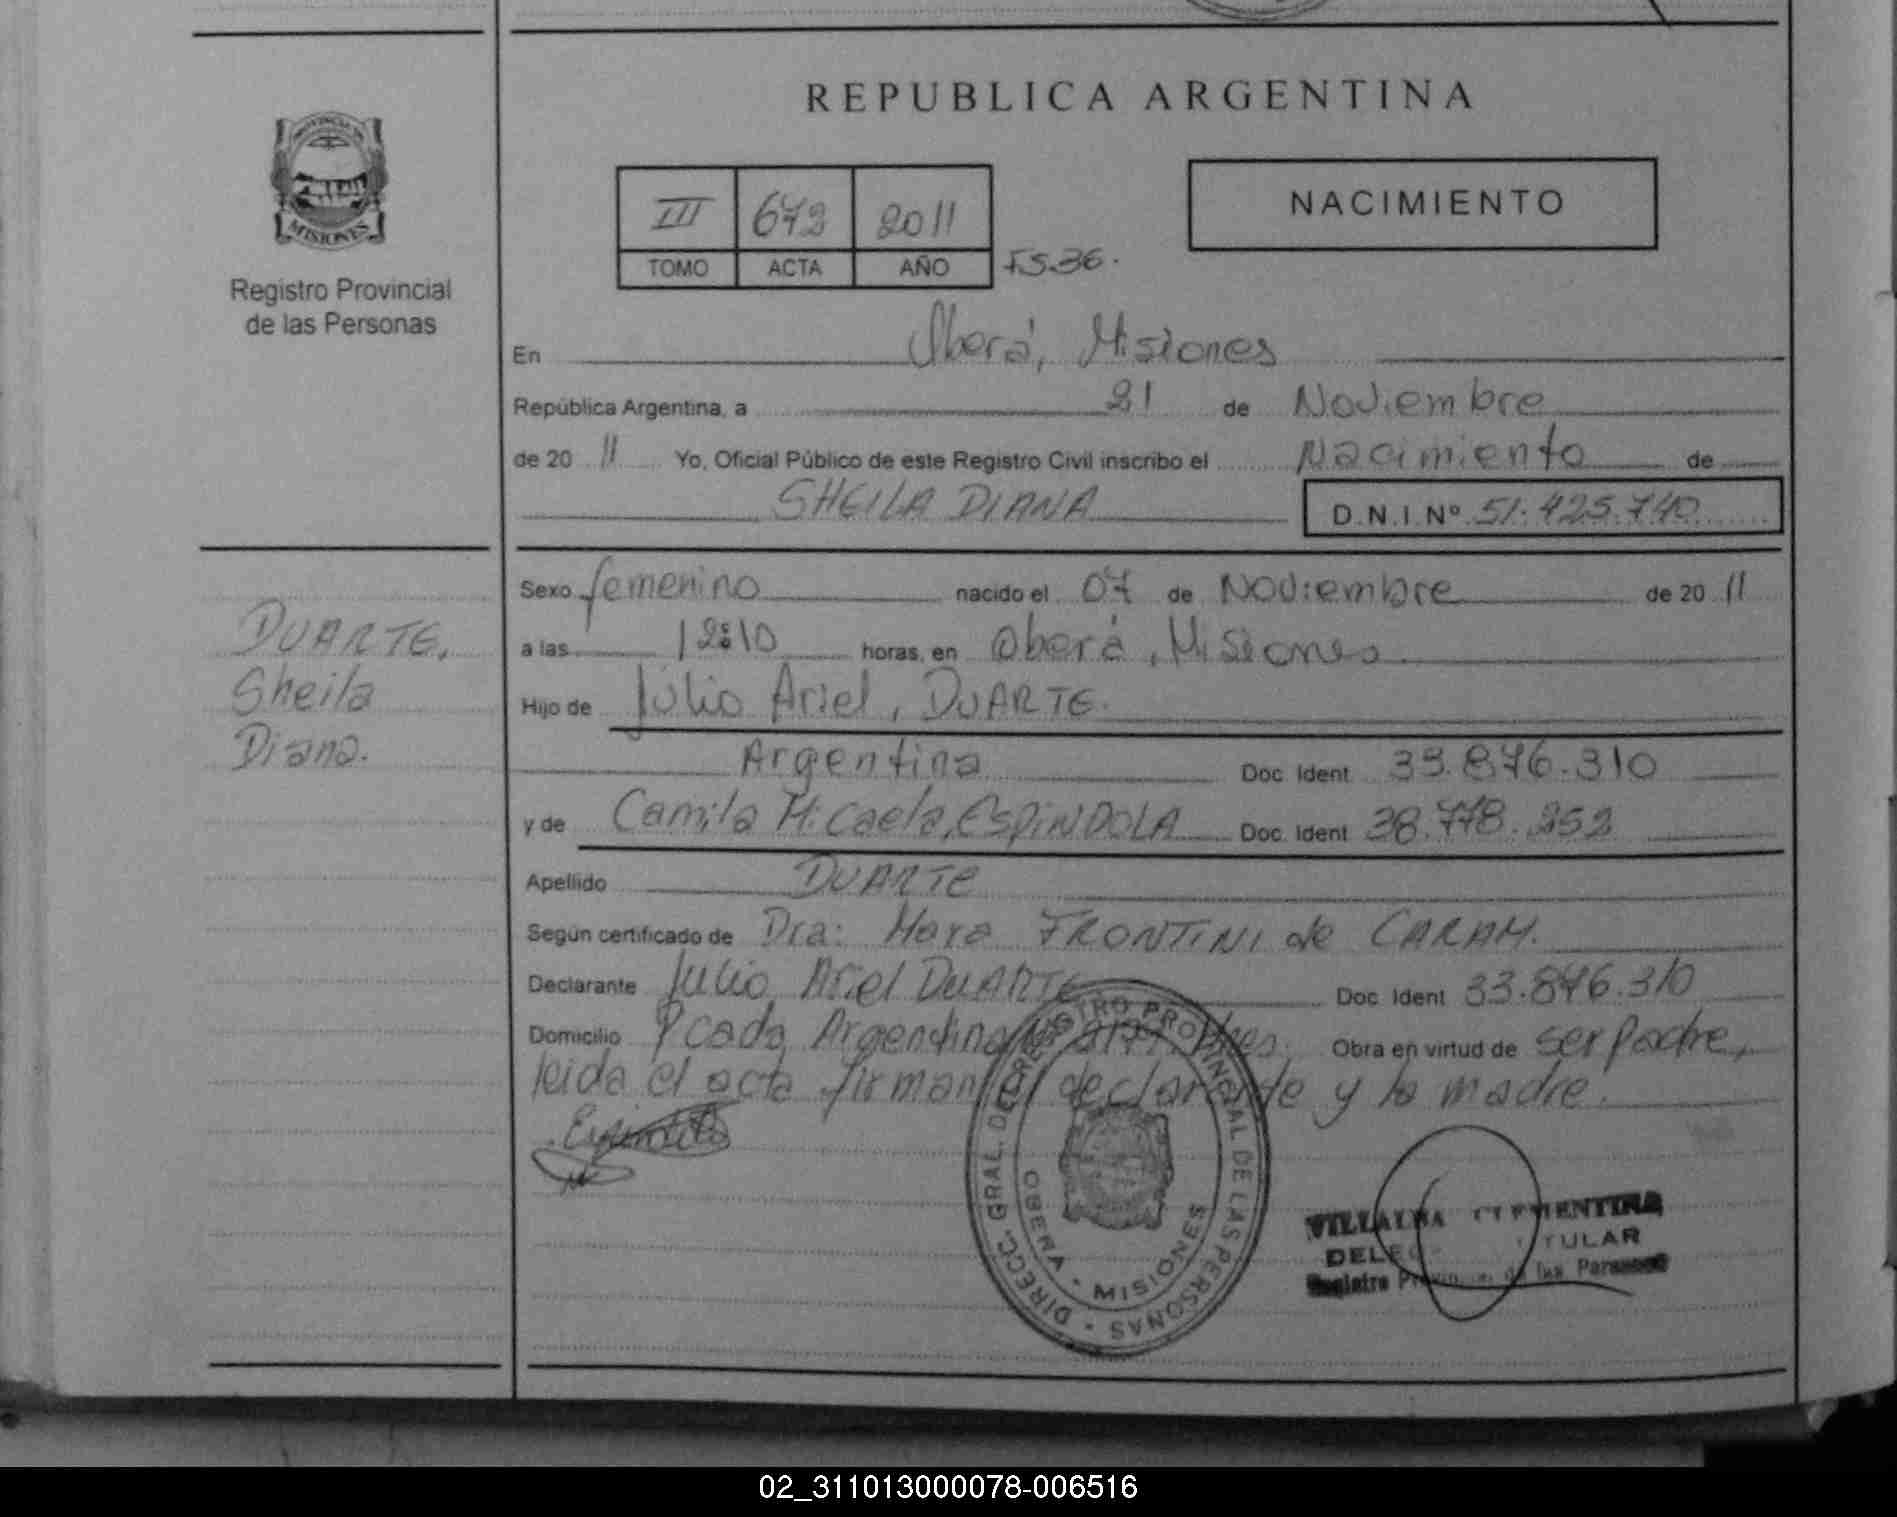 REPUBLICA ARGENTINA
PROVINCIA DE
MISIONES
Registro Provincial
de las Personas
III 672 2011
TOMO ACTA AÑO FS.36.
NACIMIENTO
En Oberá, Misiones
República Argentina, a 21 de Noviembre
de 20 11 Yo, Oficial Público de este Registro Civil inscribo el Nacimiento de
SHEILA DIANA D.N.I.Nº 51.425.740
DUARTE,
Sheila
Diana.
Sexo femenino nacido el 07 de Noviembre de 20 11
a las 12:10 horas, en Oberá, Misiones
Hijo de Julio Ariel, DUARTE.
Argentina Doc. Ident 33.876.310
y de Camila Micaela, ESPINDOLA Doc. Ident 38.778.252
Apellido DUARTE
Según certificado de Dra: Mara FRONTINI de CARAM.
Declarante Julio Ariel DUARTE Doc. Ident 33.876.310
Domicilio Pcada Argentina Obra en virtud de ser padre,
leida el acta firman el declarante y la madre.
DIRECC. GRAL. DEL REGISTRO PROVINCIAL DE LAS PERSONAS
OBERA - MISIONES
VILLALBA CLEMENTINA
TITULAR
Registro Provincial de las Personas
02_311013000078-006516